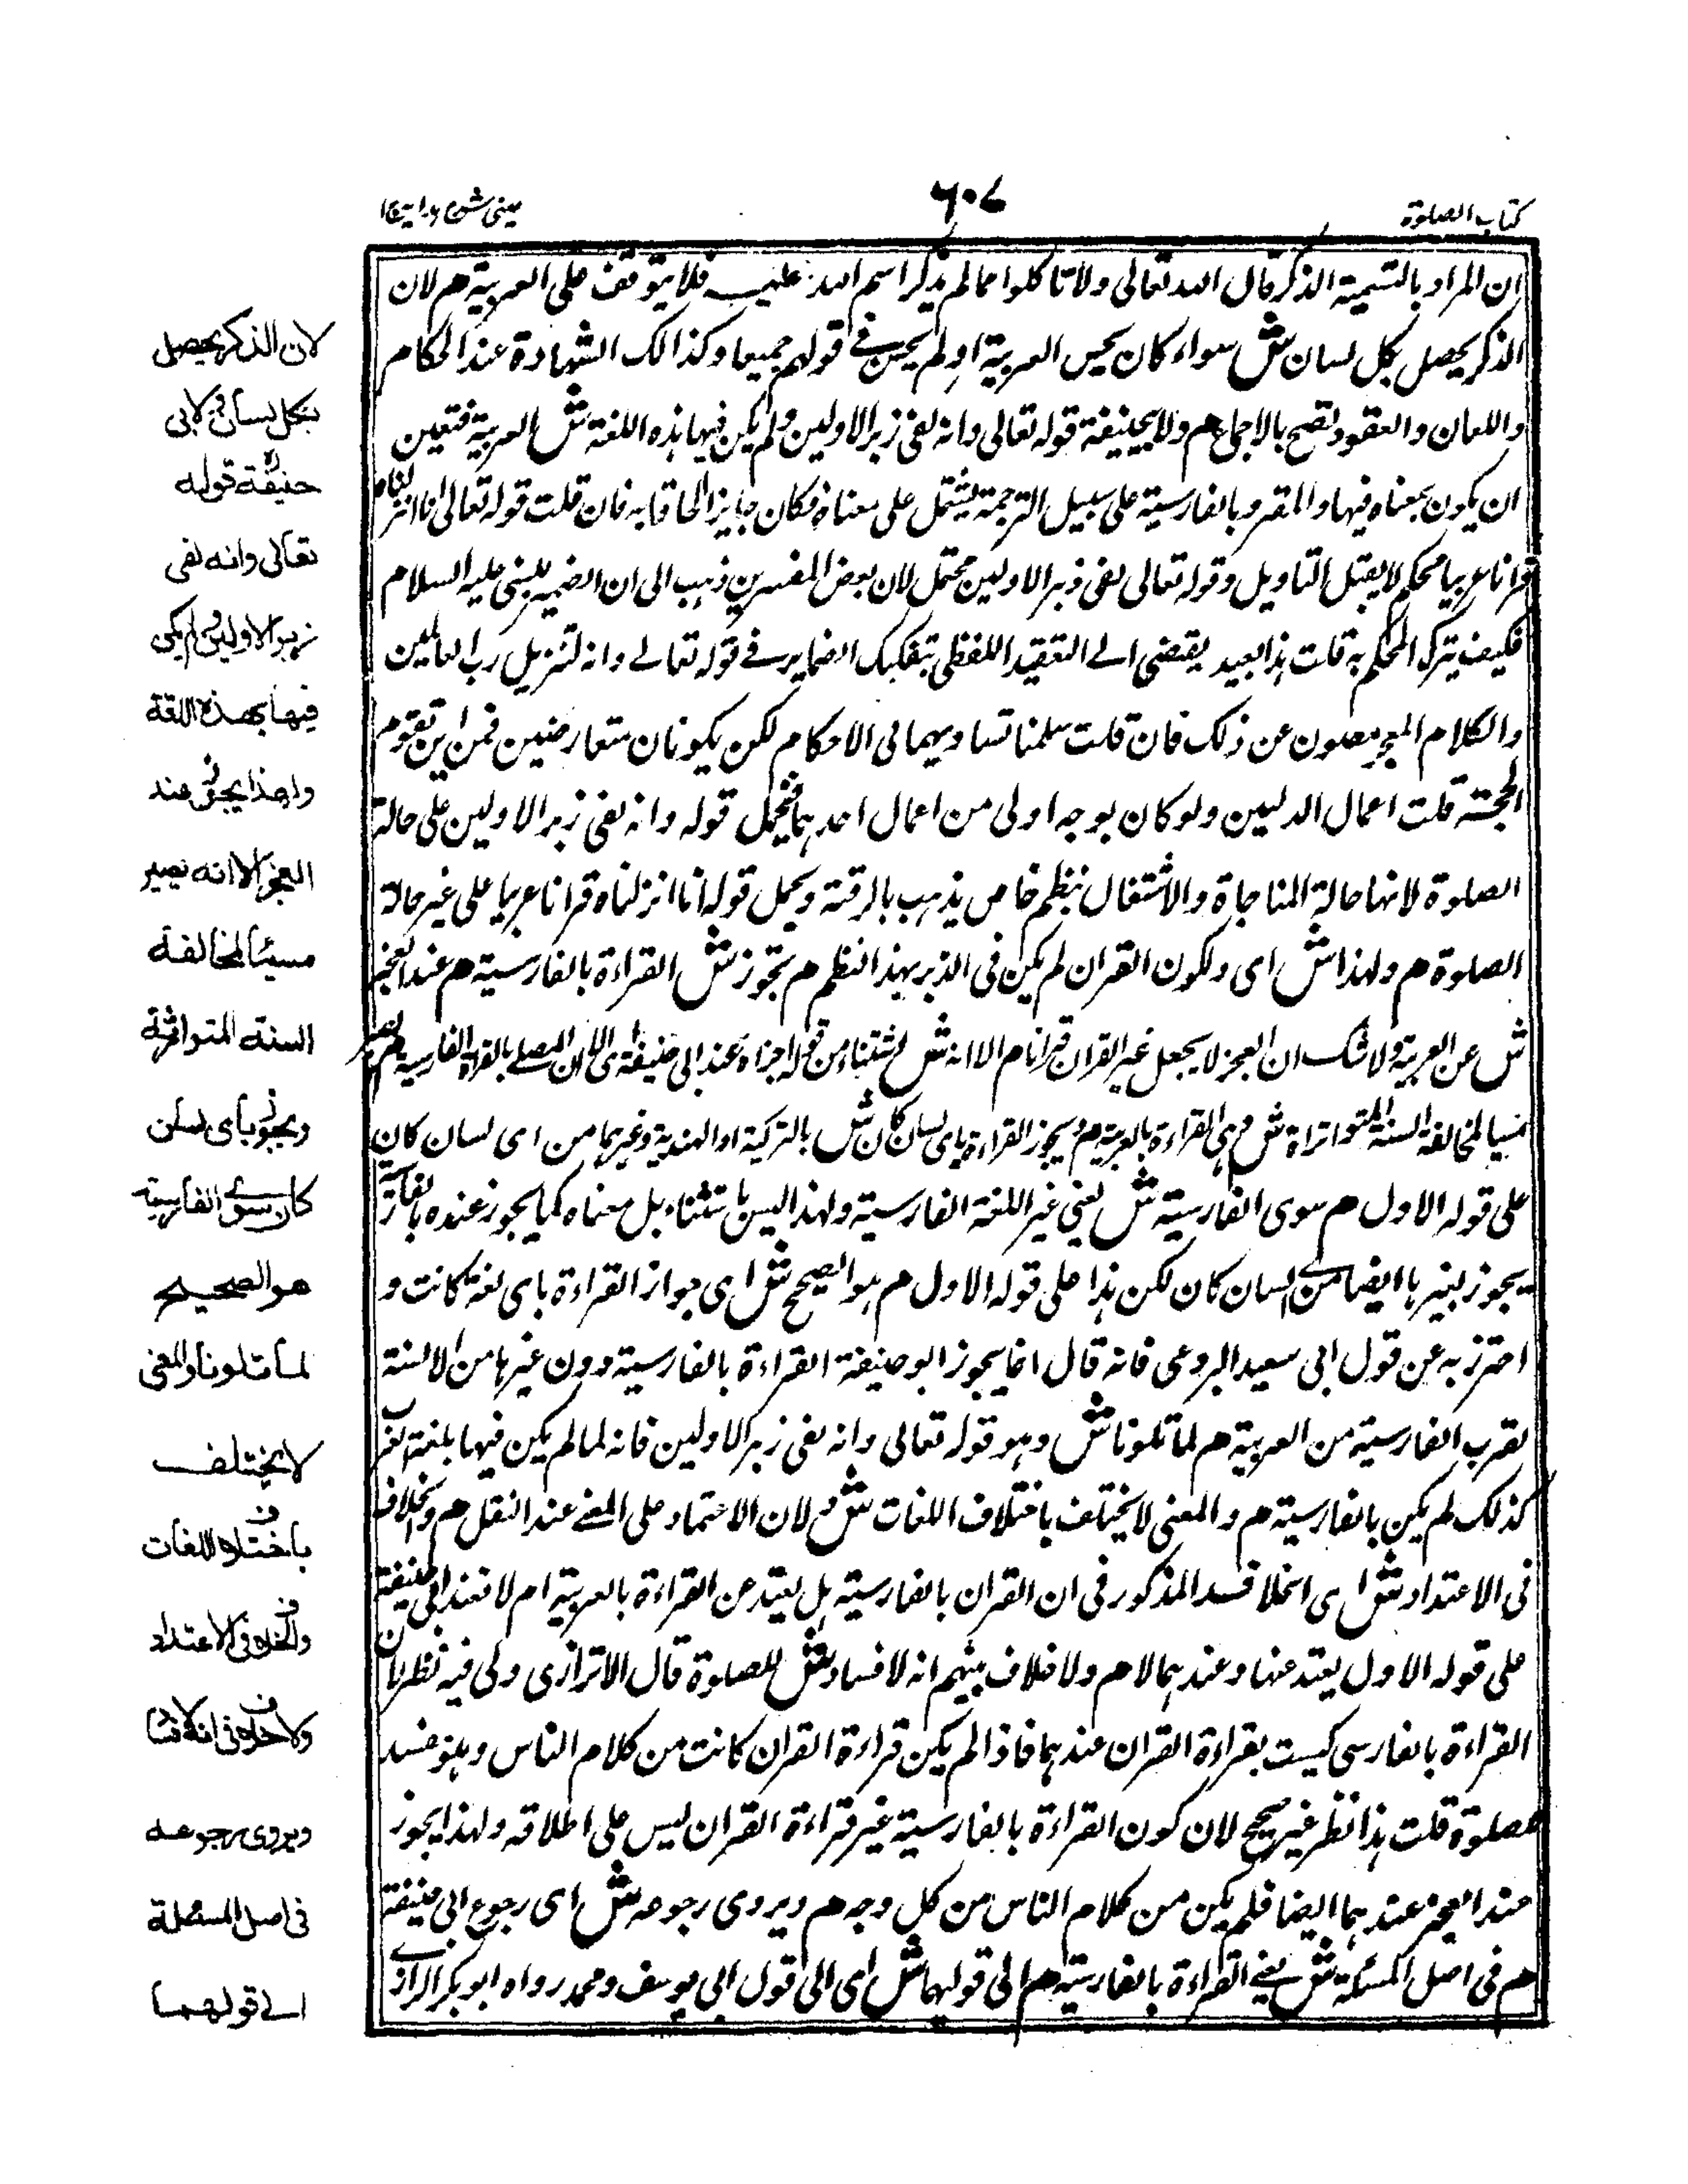 كتاب الصلوة
٦٠٧
عينى شرح هداية ج ١
ان المراد بالتسمية الذكر قال الله تعالى ولا تاكلوا مما لم يذكر اسم الله عليه فلا يتوقف على العربية هم لان
الذكر يحصل بكل لسان ش سواء كان يحسن العربية او لم يحسن في قولهم جميعا وكذالك الشهادة عند الحكام
واللعان والعقود تصح بالاجماع هم ولابيحنيفة قوله تعالى وانه لفى زبر الاولين ولم يكن فيها بهذه اللغة ش العربية فتعين
ان يكون بمعناه فيها والمقرو بالفارسية على سبيل الترجمة يشتمل على معناه فكان جايزا الحاقا به فان قلت قوله تعالى انا انزلناه
قرانا عربيا محكم لا يقبل التاويل وقوله تعالى لفى زبر الاولين محتمل لان بعض المفسرين ذهب الى ان الضمير للنبى عليه السلام
فكيف يترك المحكم به قلت هذا بعيد يقتضى الى التعقيد اللفظى بتفكيك الضماير في قوله تعالى وانه لتنزيل رب العالمين
والكلام المعجز مصون عن ذلك فان قلت سلمنا تساويهما فى الاحكام لكن يكونان متعارضين فمن اين تقوم
الحجة قلت اعمال الدليين ولو كان بوجه اولى من اعمال احدهما فيحمل قوله وانه لفى زبر الاولين على حالة
الصلوة لانها حالة المناجاة والاشتغال بنظم خاص يذهب بالرقة ويحمل قوله انا انزلناه قرانا عربيا على غير حالة
الصلوة هم ولهذا ش اى ولكون القران لم يكن فى الزبر بهذا النظم هم تجوز ش القراءة بالفارسية هم عند العجز
ش عن العربية ولا شك ان العجز لا يجعل غير القران قرانا هم الا انه ش استثناء من قوله اجزاه عند ابى حنيفة اى الا ان المصلى بالقراءة الفارسية هم يصير
مسيا لمخالفة السنة المتواترة ش وهى القراءة بالعربية هم ويجوز القراءة باى لسان كان ش بالتركية او الهندية وغيرهما من اى لسان كان
على قوله الاول هم سوى الفارسية ش يعنى غير اللغة الفارسية ولهذا ليس باستثناء بل معناه كما يجوز عنده بالفارسية
يجوز بغيرها ايضا من اى لسان كان لكن هذا على قوله الاول هم هو الصحيح ش اى جواز القراءة باى لغة كانت و
احترز به عن قول ابى سعيد البردعى فانه قال انما يجوز ابو حنيفة القراءة بالفارسية دون غيرها من الالسنة
لقرب الفارسية من العربية هم لما تلونا ش وهو قوله تعالى وانه لفى زبر الاولين فانه لما لم يكن فيها بلغة العرب
كذلك لم يكن بالفارسية هم والمعنى لا يختلف باختلاف اللغات ش لان الاعتماد على المعنى عند النقل هم والخلاف
فى الاعتداد ش اى الخلاف المذكور فى ان القران بالفارسية هل يعتد عن القراءة بالعربية ام لا فعند ابى حنيفة
على قوله الاول يعتد عنها وعندهما لا هم ولا خلاف بينهم انه لا فساد ش للصلوة قال الاترازى ولى فيه نظر لان
القراءة بالفارسى ليست بقراءة القران عندهما فاذا لم يكن قراءة القران كانت من كلام الناس وهو مفسد
للصلوة قلت هذا نظر غير صحيح لان كون القراءة بالفارسية غير قراءة القران ليس على اطلاقه ولهذا يجوز
عند العجز عندهما ايضا فلم يكن من كلام الناس من كل وجه هم ويروى رجوعه ش اى رجوع ابى حنيفة
هم فى اصل المسئلة ش يعني القراءة بالفارسية هم الى قولهما ش اى الى قول ابى يوسف ومحمد رواه ابو بكر الرازى
لان الذكر يحصل
بكل لسان ولابى
حنيفة قوله
تعالى وانه لفى
زبر الاولين ولم يكن
فيها بهذه اللغة
ولهذا يجوز عند
العجز الا انه يصير
مسيئا لمخالفة
السنة المتواترة
ويجوز باى لسان
كان سوى الفارسية
هو الصحيح
لما تلونا والمعنى
لا يختلف
باختلاف اللغات
والخلاف فى الاعتداد
ولا خلاف فى انه لا فساد
ويروى رجوعه
فى اصل المسئلة
الى قولهما